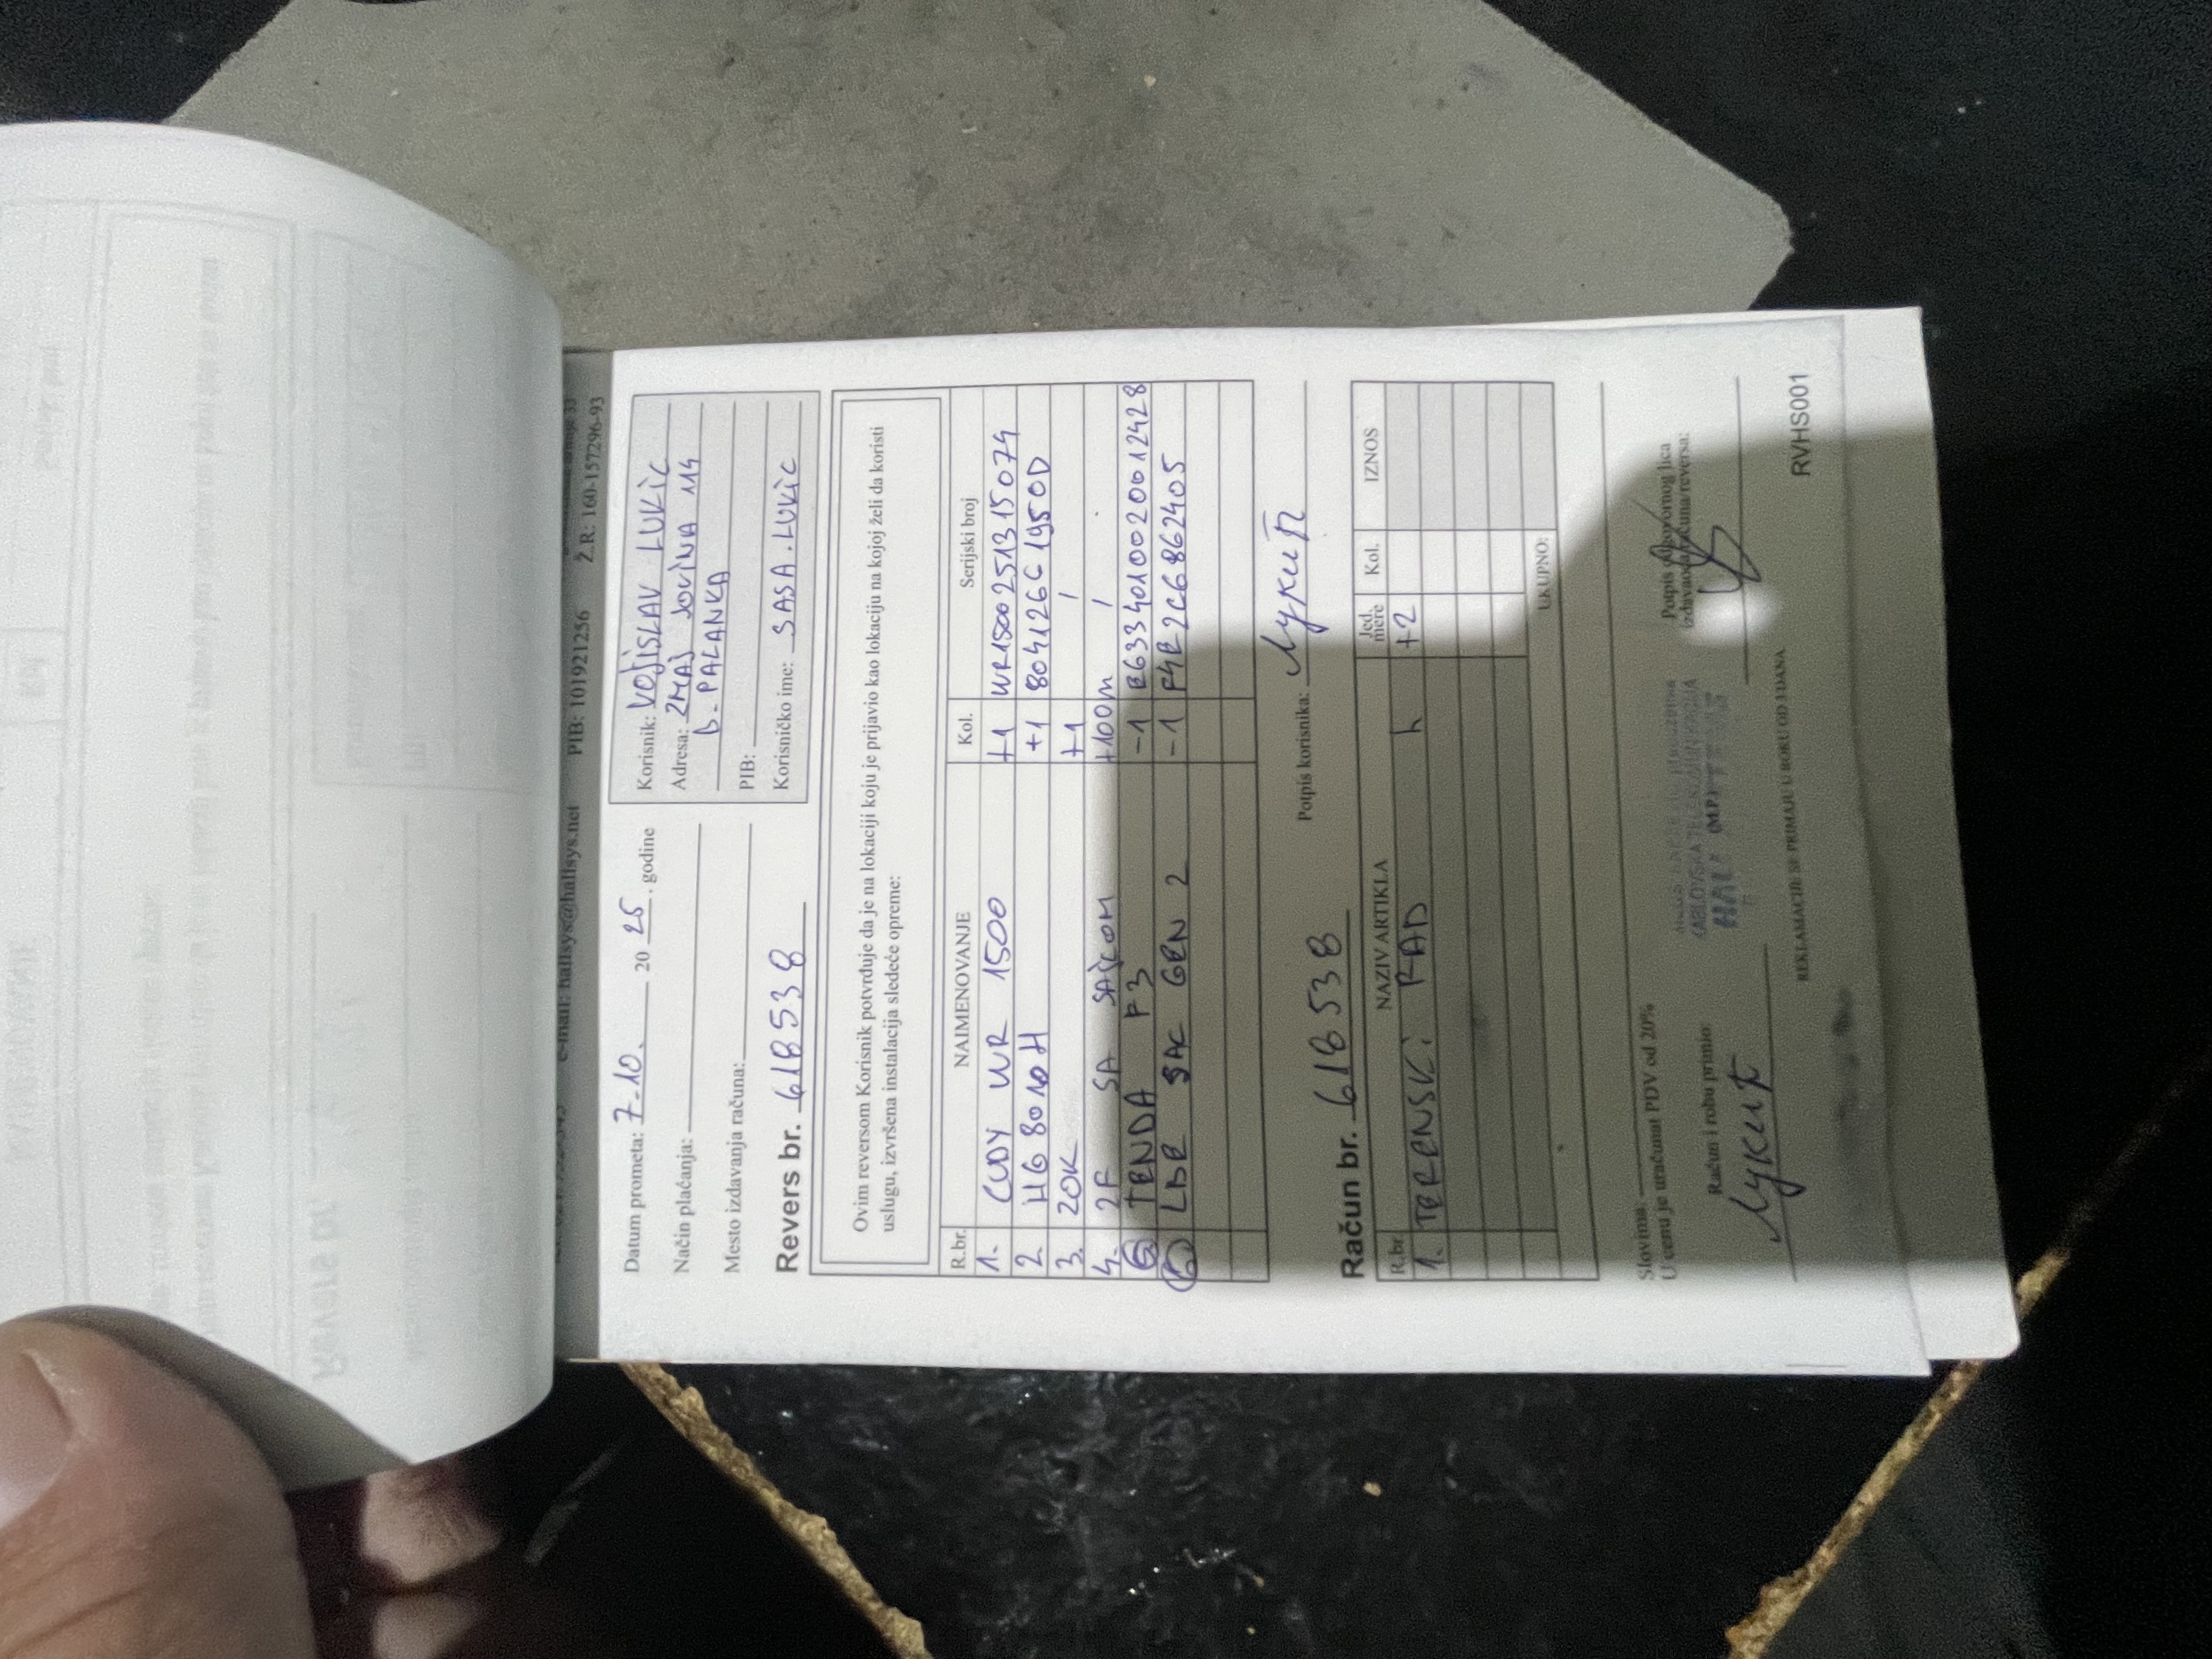 e-mail: hallsys@hallsys.net PIB: 101921256 Ž.R: 160-157296-93
Datum prometa: 7-10. 20 25. godine
Način plaćanja:
Mesto izdavanja računa:
Korisnik: VOJISLAV LUKIC
Adresa: ZMAJ JOVINA 114
B. PALANKA
PIB:
Korisničko ime: SASA.LUKIC
Revers br. 618538
Ovim reversom Korisnik potvrđuje da je na lokaciji koju je prijavio kao lokaciju na kojoj želi da koristi
uslugu, izvršena instalacija sledeće opreme:
R.br. NAIMENOVANJE Kol. Serijski broj
1. CUDY WR 1500 +1 WR1500251315074
2 HG 8010H +1 804126C1950D
3. ZOK +1 /
4. 2F SA SAJLOM +100m /
5 TENDA F3 -1 E6334010020012428
6 LBE 5AC GEN 2 -1 F4E2C6862405
Potpis korisnika: Лукић
Račun br. 618538
R.br NAZIV ARTIKLA Jed. mere Kol. IZNOS
1. TERENSKI RAD h +2
UKUPNO:
Slovima:
U cenu je uračunat PDV od 20%
Račun i robu primio:
Лукић
KABLOVSKA TELEKOMUNIKACIJA
(MP)
Potpis odgovornog lica
izdavaoca računa/reversa:
REKLAMACIJE SE PRIMAJU U ROKU OD 3 DANA
RVHS001